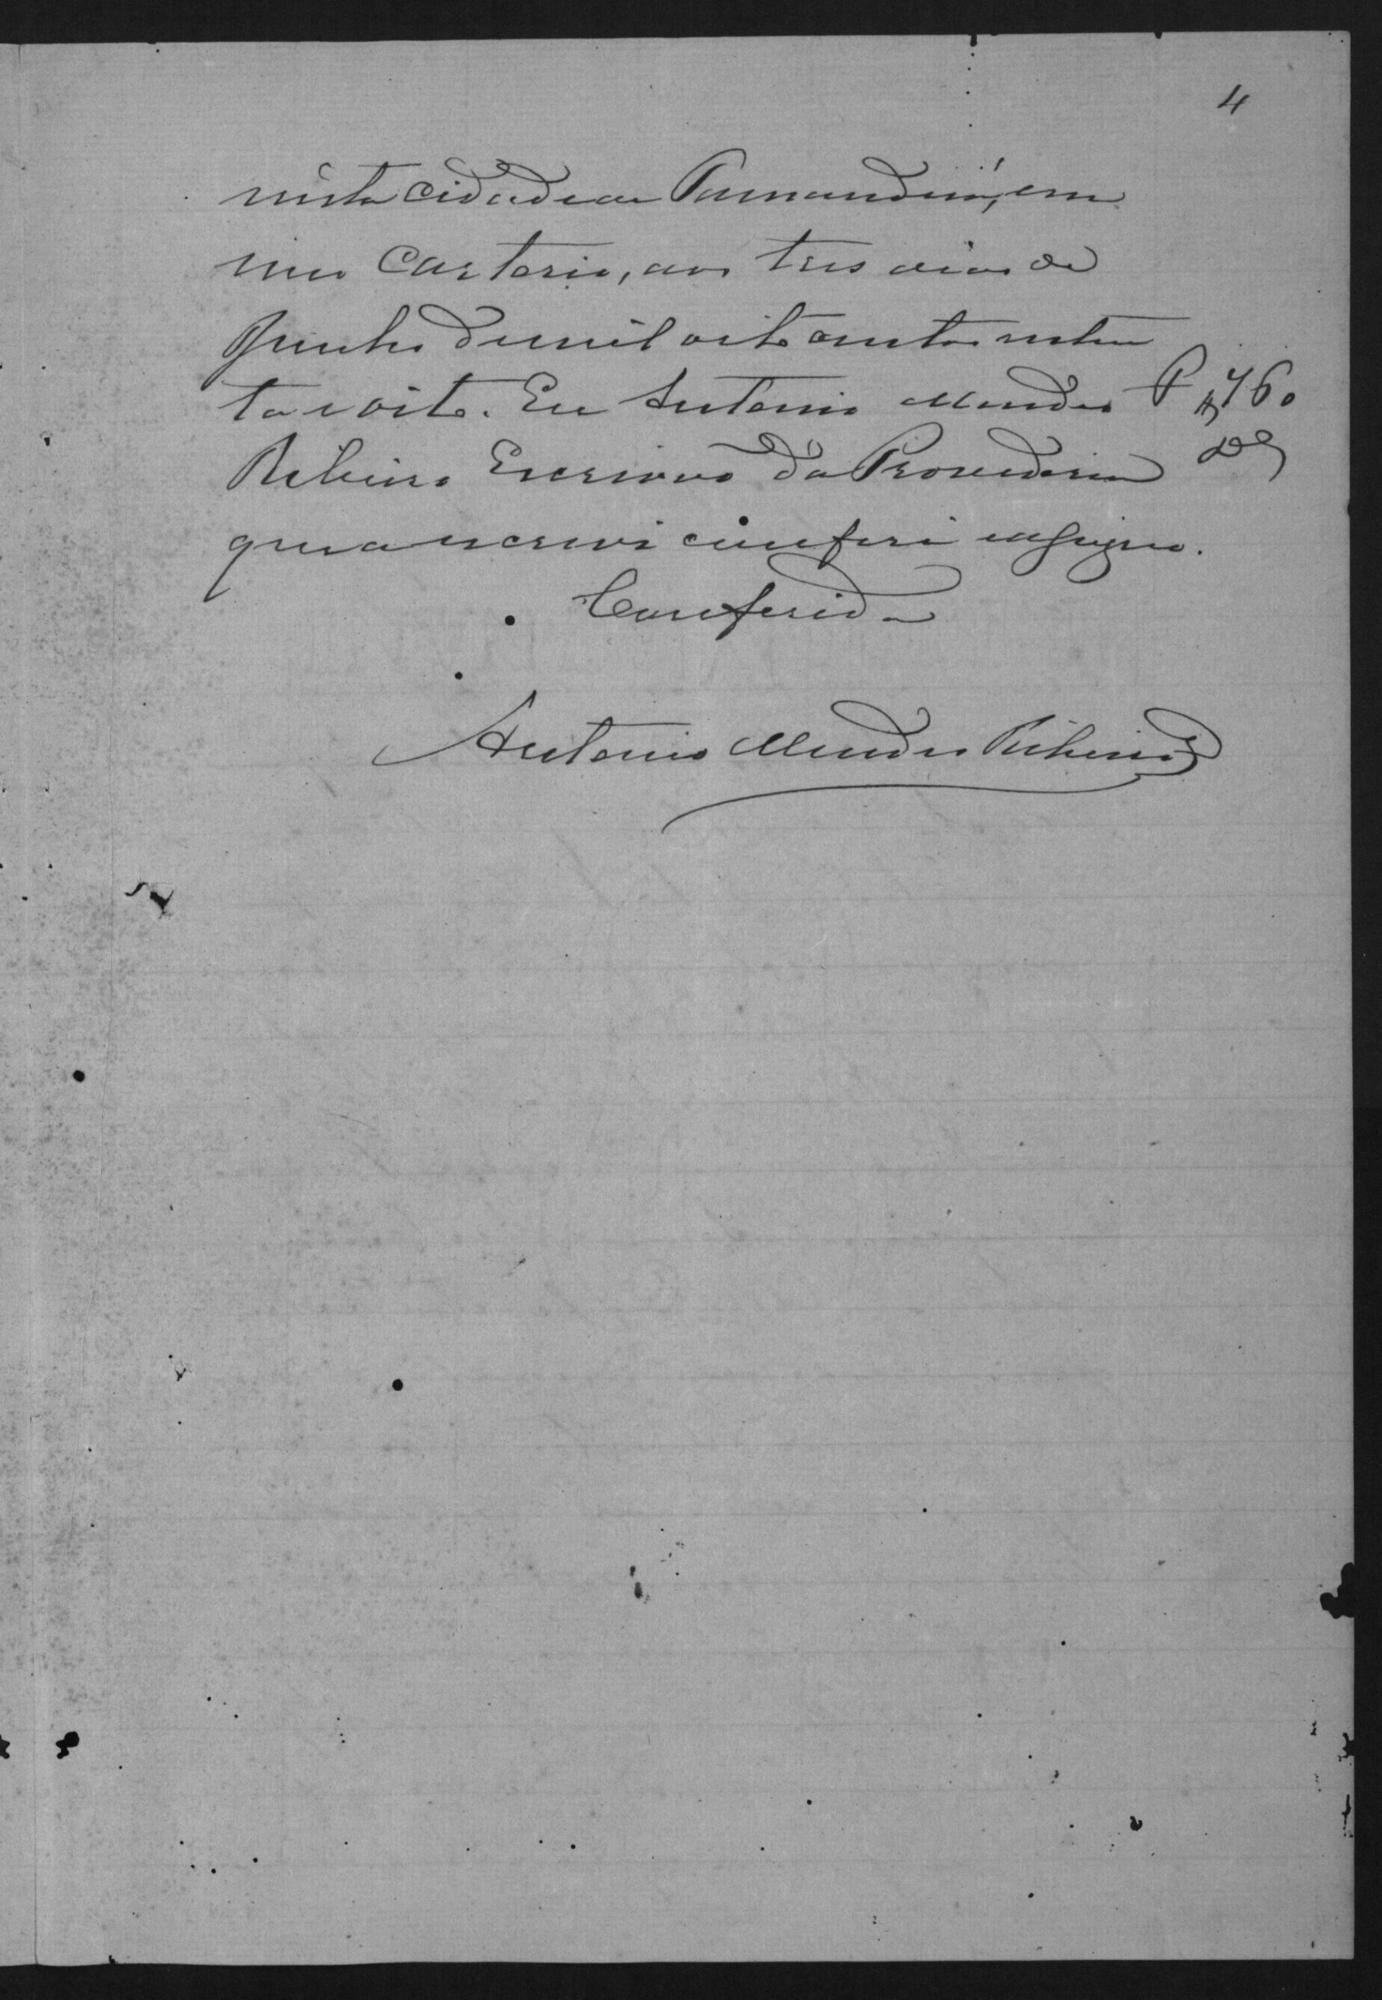 4
nesta cidade de Tamanduá, em
meu Cartorio, aos tres dias de
Junho de mil oito centos setten
ta e oito. Eu Antonio Mendes
Ribeiro Escrivão da Provedoria
que a escrevi conferi e assigno.
Conferida
Antonio Mendes Ribeiro